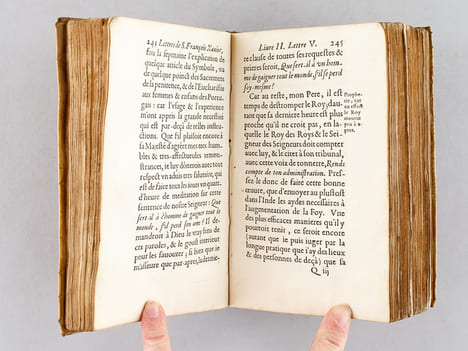 243 Lettres de S. François Xavier,
fera la septainte l'explication de
quelque article du Symbole, ou
de quelque poinct des Sacremens
de la penitence, & de l'Eucharistie
aux femmes & enfans des Portu-
gais : car l'usage & l'experience
m'ont appris la grande necessité
qui est par-deçà de telles instru-
ctions. Que s'il plaisoit encore à
sa Majesté d'agréer mes tres hum-
bles & tres-affectueuses remon-
strances, ie luy dōnerois avec tout
respect vn aduis tres salutaire, qui
est de faire tous les iours vn quart-
d'heure de meditation sur cette
sentence de nostre Seigneur : Que
sert il à l'homme de gaigner tout le
monde, s'il perd son ame ! Il de-
mandroit à Dieu le vray sens de
ces paroles, & le goust interieur
pour les sauourer ; si bien que ie
m'asseure que par-apres, la dernie-
Liure II. Lettre V. 245
re clause de toutes ses requestes &
prieres seroit, Que sert-il à vn hom-
me de gaigner tout le monde, s'il se perd
soy-mesme ?
Car au reste, mon Pere, il est
temps de destromper le Roy ; dau-
tant que sa derniere heure est plus
proche qu'il ne croit pas, en la-
quelle le Roy des Roys & le Sei-
gneur des Seigneurs doit compter
avec luy, & le citer à son tribunal,
avec cette voix de tonnerre, Rends
compte de ton administration. Pres-
sez le donc de faire cette bonne
œuure, que d'enuoyer au plustost
dans l'Inde les aydes necessaires à
l'augmentation de la Foy. Vne
des plus efficaces manieres qu'il y
pourroit tenir, ce seroit encore
(autant que ie puis iuger par la
longue pratique que i'ay des lieux
& des personnes de deçà) que sa
Q iij
Prophe-
tie, car
en effect
le Roy
mourut
peu à a-
pres.